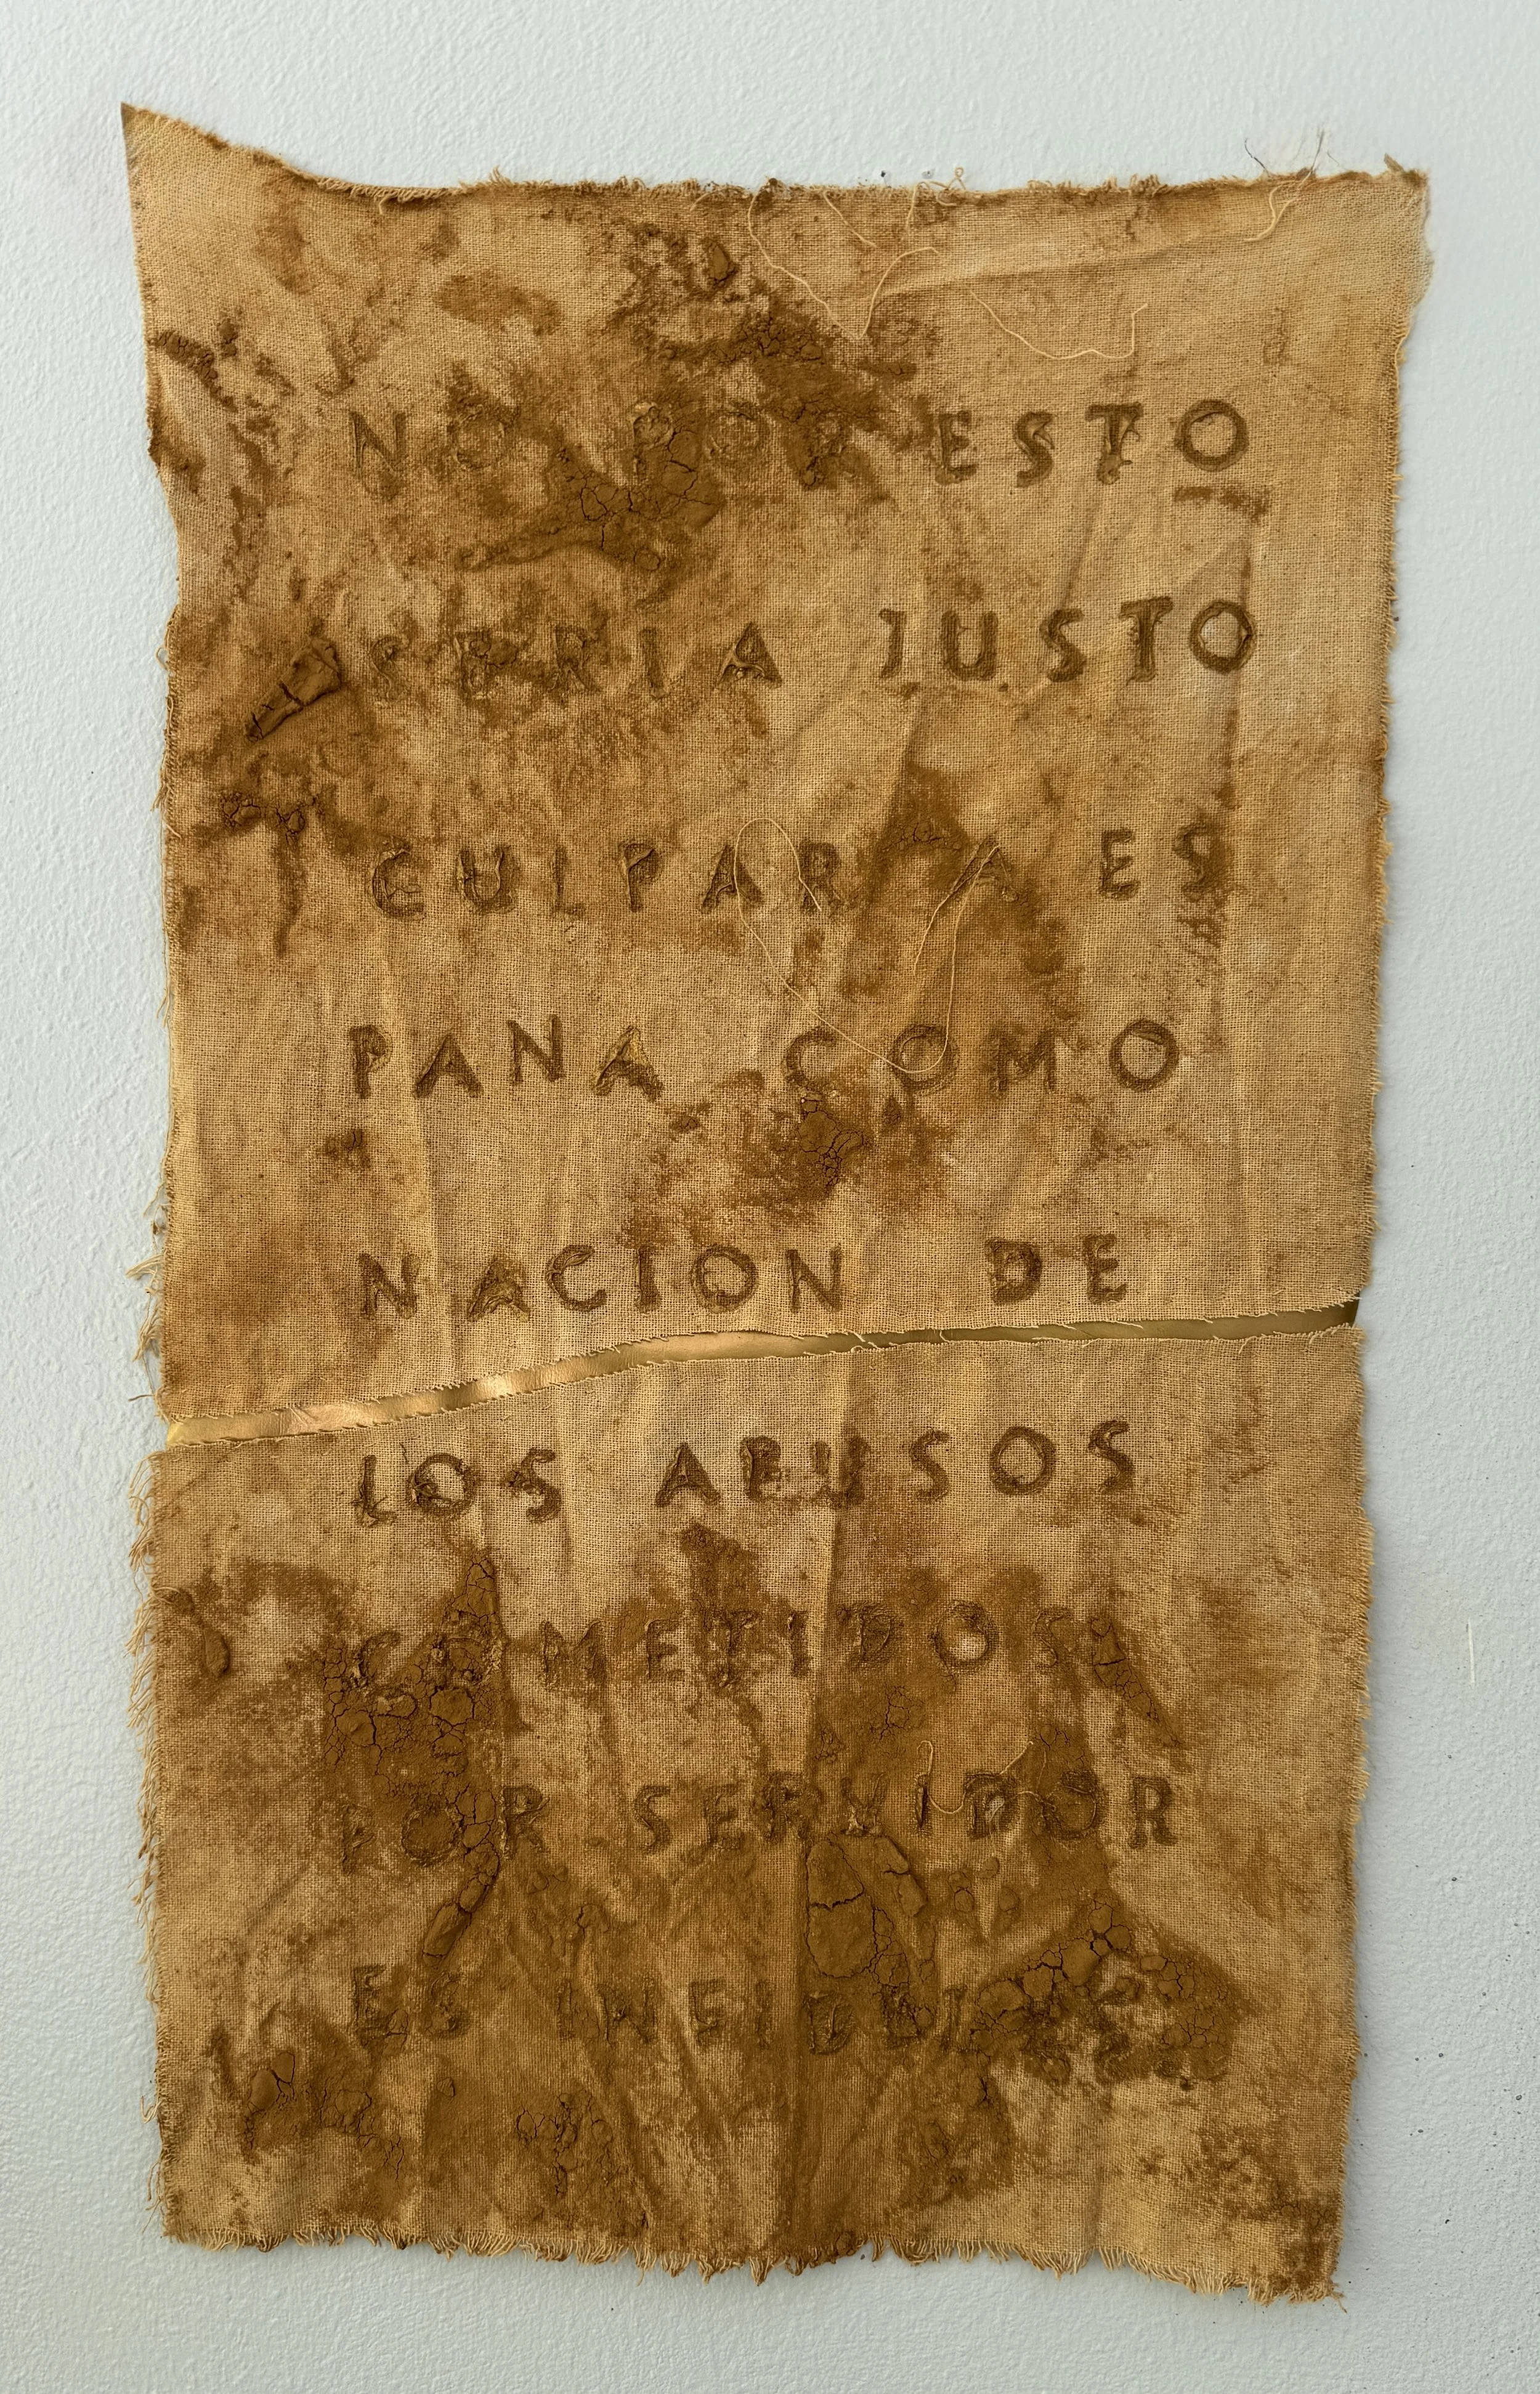 NO POR ESTO
SERIA JUSTO
CULPAR A ES
PANA COMO
NACION DE
LOS ABUSOS
COMETIDOS
POR SERVIDOR
ES INFIDELES